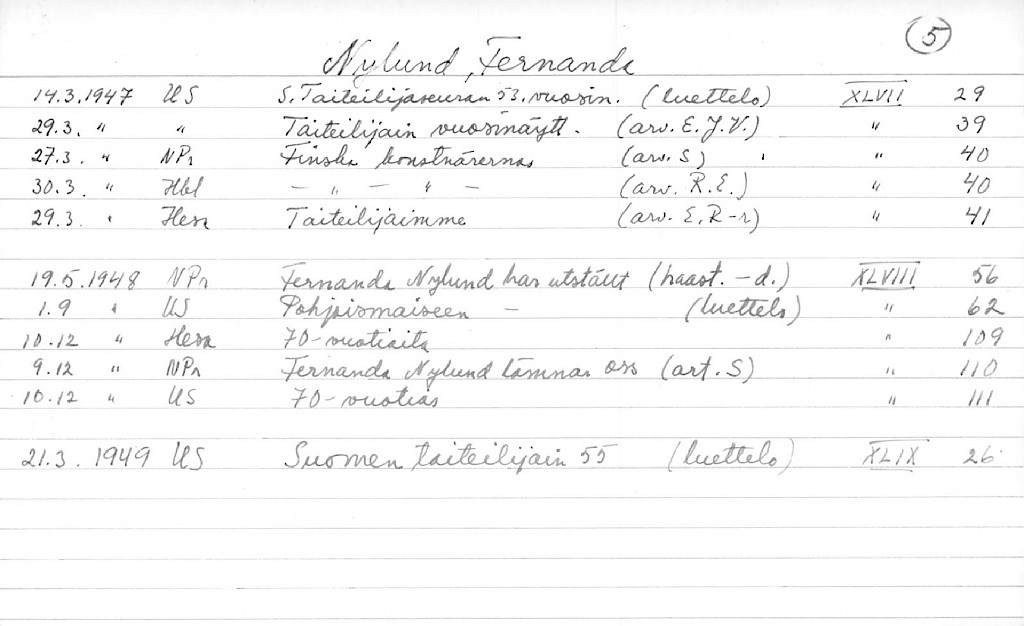 5
Nylund, Fernanda
14.3.1947 US S. Taiteilijaseuran 53. vuosin. (luettelo) XLVII 29
29.3. " " Taiteilijain vuosinäytt. (arv. E.J.V.) " 39
27.3. " NPr Finska konstnärernas (arv. S) " 40
30.3. " Hbl — " — " — (arv. R.E.) " 40
29.3. " Hesa Taiteilijaimme (arv. E.R-r) " 41
19.5.1948 NPr Fernanda Nylund har utställt (haast. -d.) XLVIII 56
1.9 " US Pohjoismaiseen — (luettelo) " 62
10.12 " Hesa 70-vuotiaita " 109
9.12 " NPr Fernanda Nylund lämnar oss (art. S) " 110
10.12 " US 70-vuotias " 111
21.3. 1949 US Suomen taiteilijain 55 (luettelo) XLIX 26